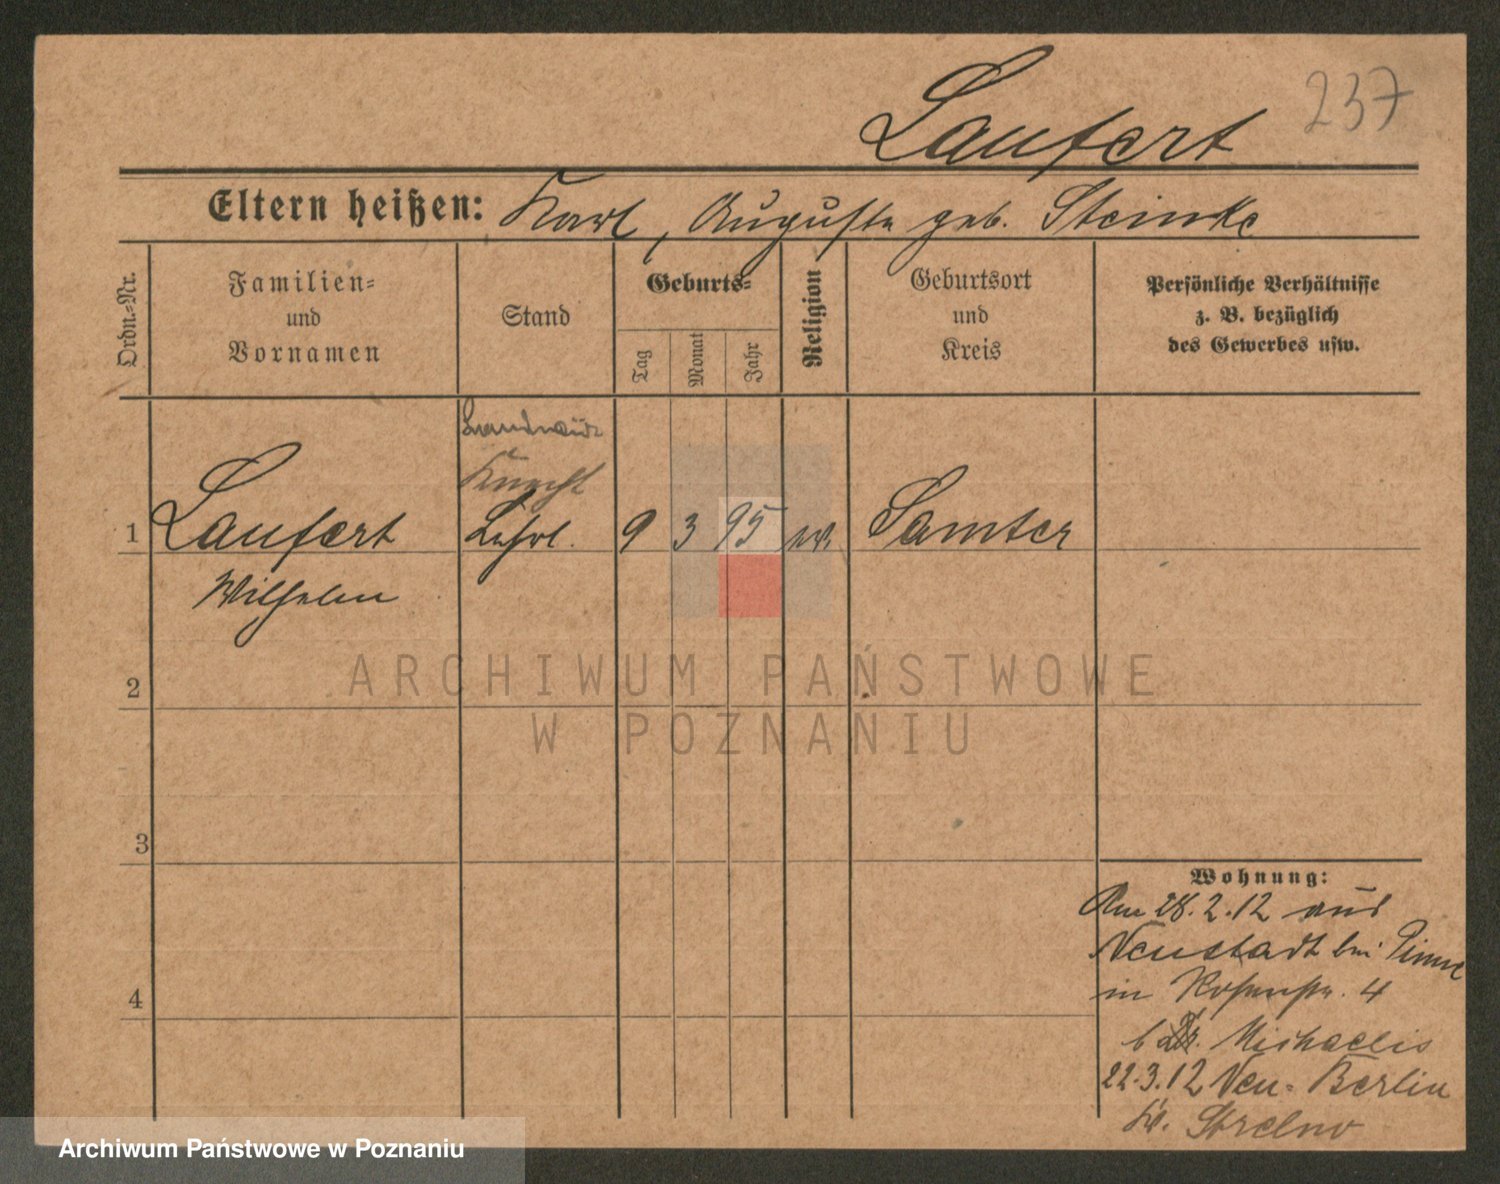 Laufert 237
Eltern heißen: Karl, Auguste geb. Steinke
Ordn.-Nr.
Familien-
und
Vornamen
Stand
Geburts-
Tag
Monat
Jahr
Religion
Geburtsort
und
Kreis
Persönliche Verhältnisse
z. B. bezüglich
des Gewerbes usw.
Knecht
1 Laufert Lehrl. 9 3 95 ev. Samter
Wilhelm
2
3
4
Wohnung:
Am 28.2.12 aus
Neustadt bei Pinne
in Rosenstr. 4
b Dr. Michaelis
22.3.12 Neu-Berlin
Kr. Strelno
ARCHIWUM PAŃSTWOWE
W POZNANIU
Archiwum Państwowe w Poznaniu